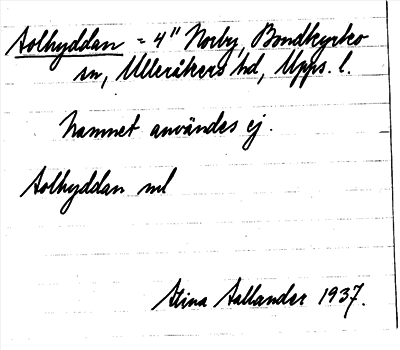 Solhyddan = 4" Norby, Bondkyrko
sn, Ulleråkers hd, Upps. l.
Namnet användes ej.
Solhyddan ml
Stina Sallander 1937.